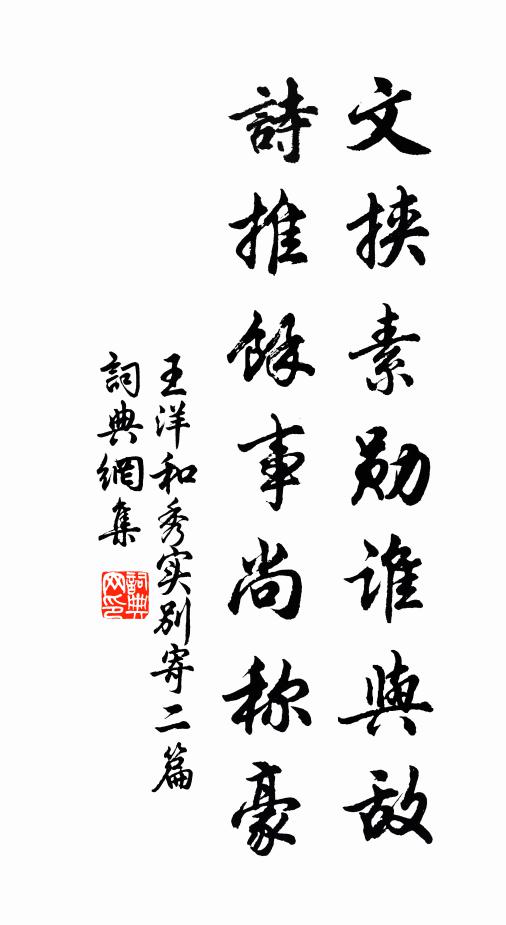 文挟素勋谁與敌
詩推餘事尚称豪
王洋和秀实别寄二篇
詞典網集
詞典网印